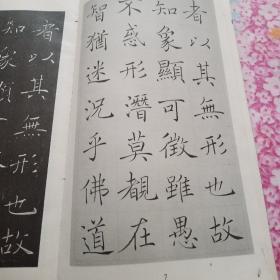 者以其無形也故
知象顯可徵雖愚
不惑形潛莫覩在
智猶迷況乎佛道
者以其無形也故
知象